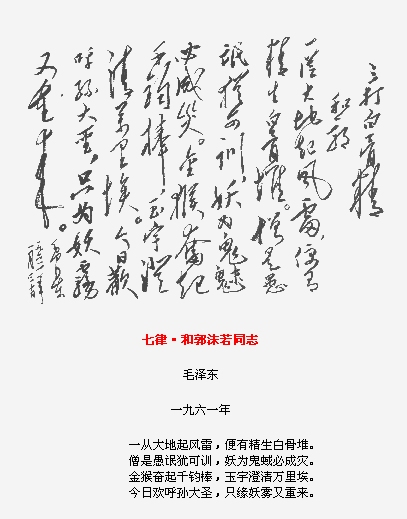 三打白骨精
和郭
一从大地起风雷，便有
精生白骨堆。僧是愚
氓犹可训，妖为鬼蜮
必成灾。金猴奋起
千钧棒，玉宇澄
清万里埃。今日欢
呼孙大圣，只缘妖雾
又重来。
七律·和郭沫若同志
毛泽东
一九六一年
一从大地起风雷，便有精生白骨堆。
僧是愚氓犹可训，妖为鬼蜮必成灾。
金猴奋起千钧棒，玉宇澄清万里埃。
今日欢呼孙大圣，只缘妖雾又重来。